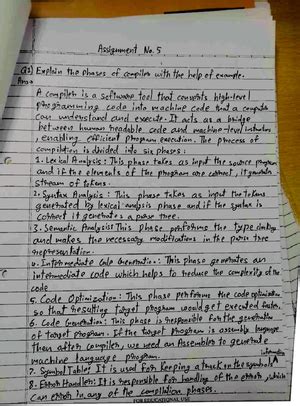 Assignment No. 5
Q1) Explain the phases of compiler with the help of example.
Ans→
A compiler is a software tool that converts high-level
programming code into machine code that a computer
can understand and execute. It acts as a bridge
between human readable code and machine-level instructions
enabling efficient program execution. The process of
compilation is divided into six phases:
1. Lexical Analysis: This phase takes as input the source program
and if the elements of the program are correct, it generates
stream of tokens.
2. Syntax Analysis: This phase takes as input the tokens
generated by lexical analysis phase and if the syntax is
correct it generates a parse tree.
3. Semantic Analysis: This phase performs the type checking
and makes the necessary modifications in the parse tree
representation.
4. Intermediate Code Generation: This phase generates an
intermediate code which helps to reduce the complexity of the
code
5. Code Optimization: This phase performs the code optimization
so that resulting target program would get executed faster.
6. Code Generation: This phase is responsible for the generation
of target program. If the target program is assembly language
then after compiler, we need an Assembler to generate
machine language program.
7. Symbol Table: It is used for keeping a track on the symbols information
8. Error Handler: It is responsible for handling of the errors, which
can occur in any of the compilation phases.
FOR EDUCATIONAL USE